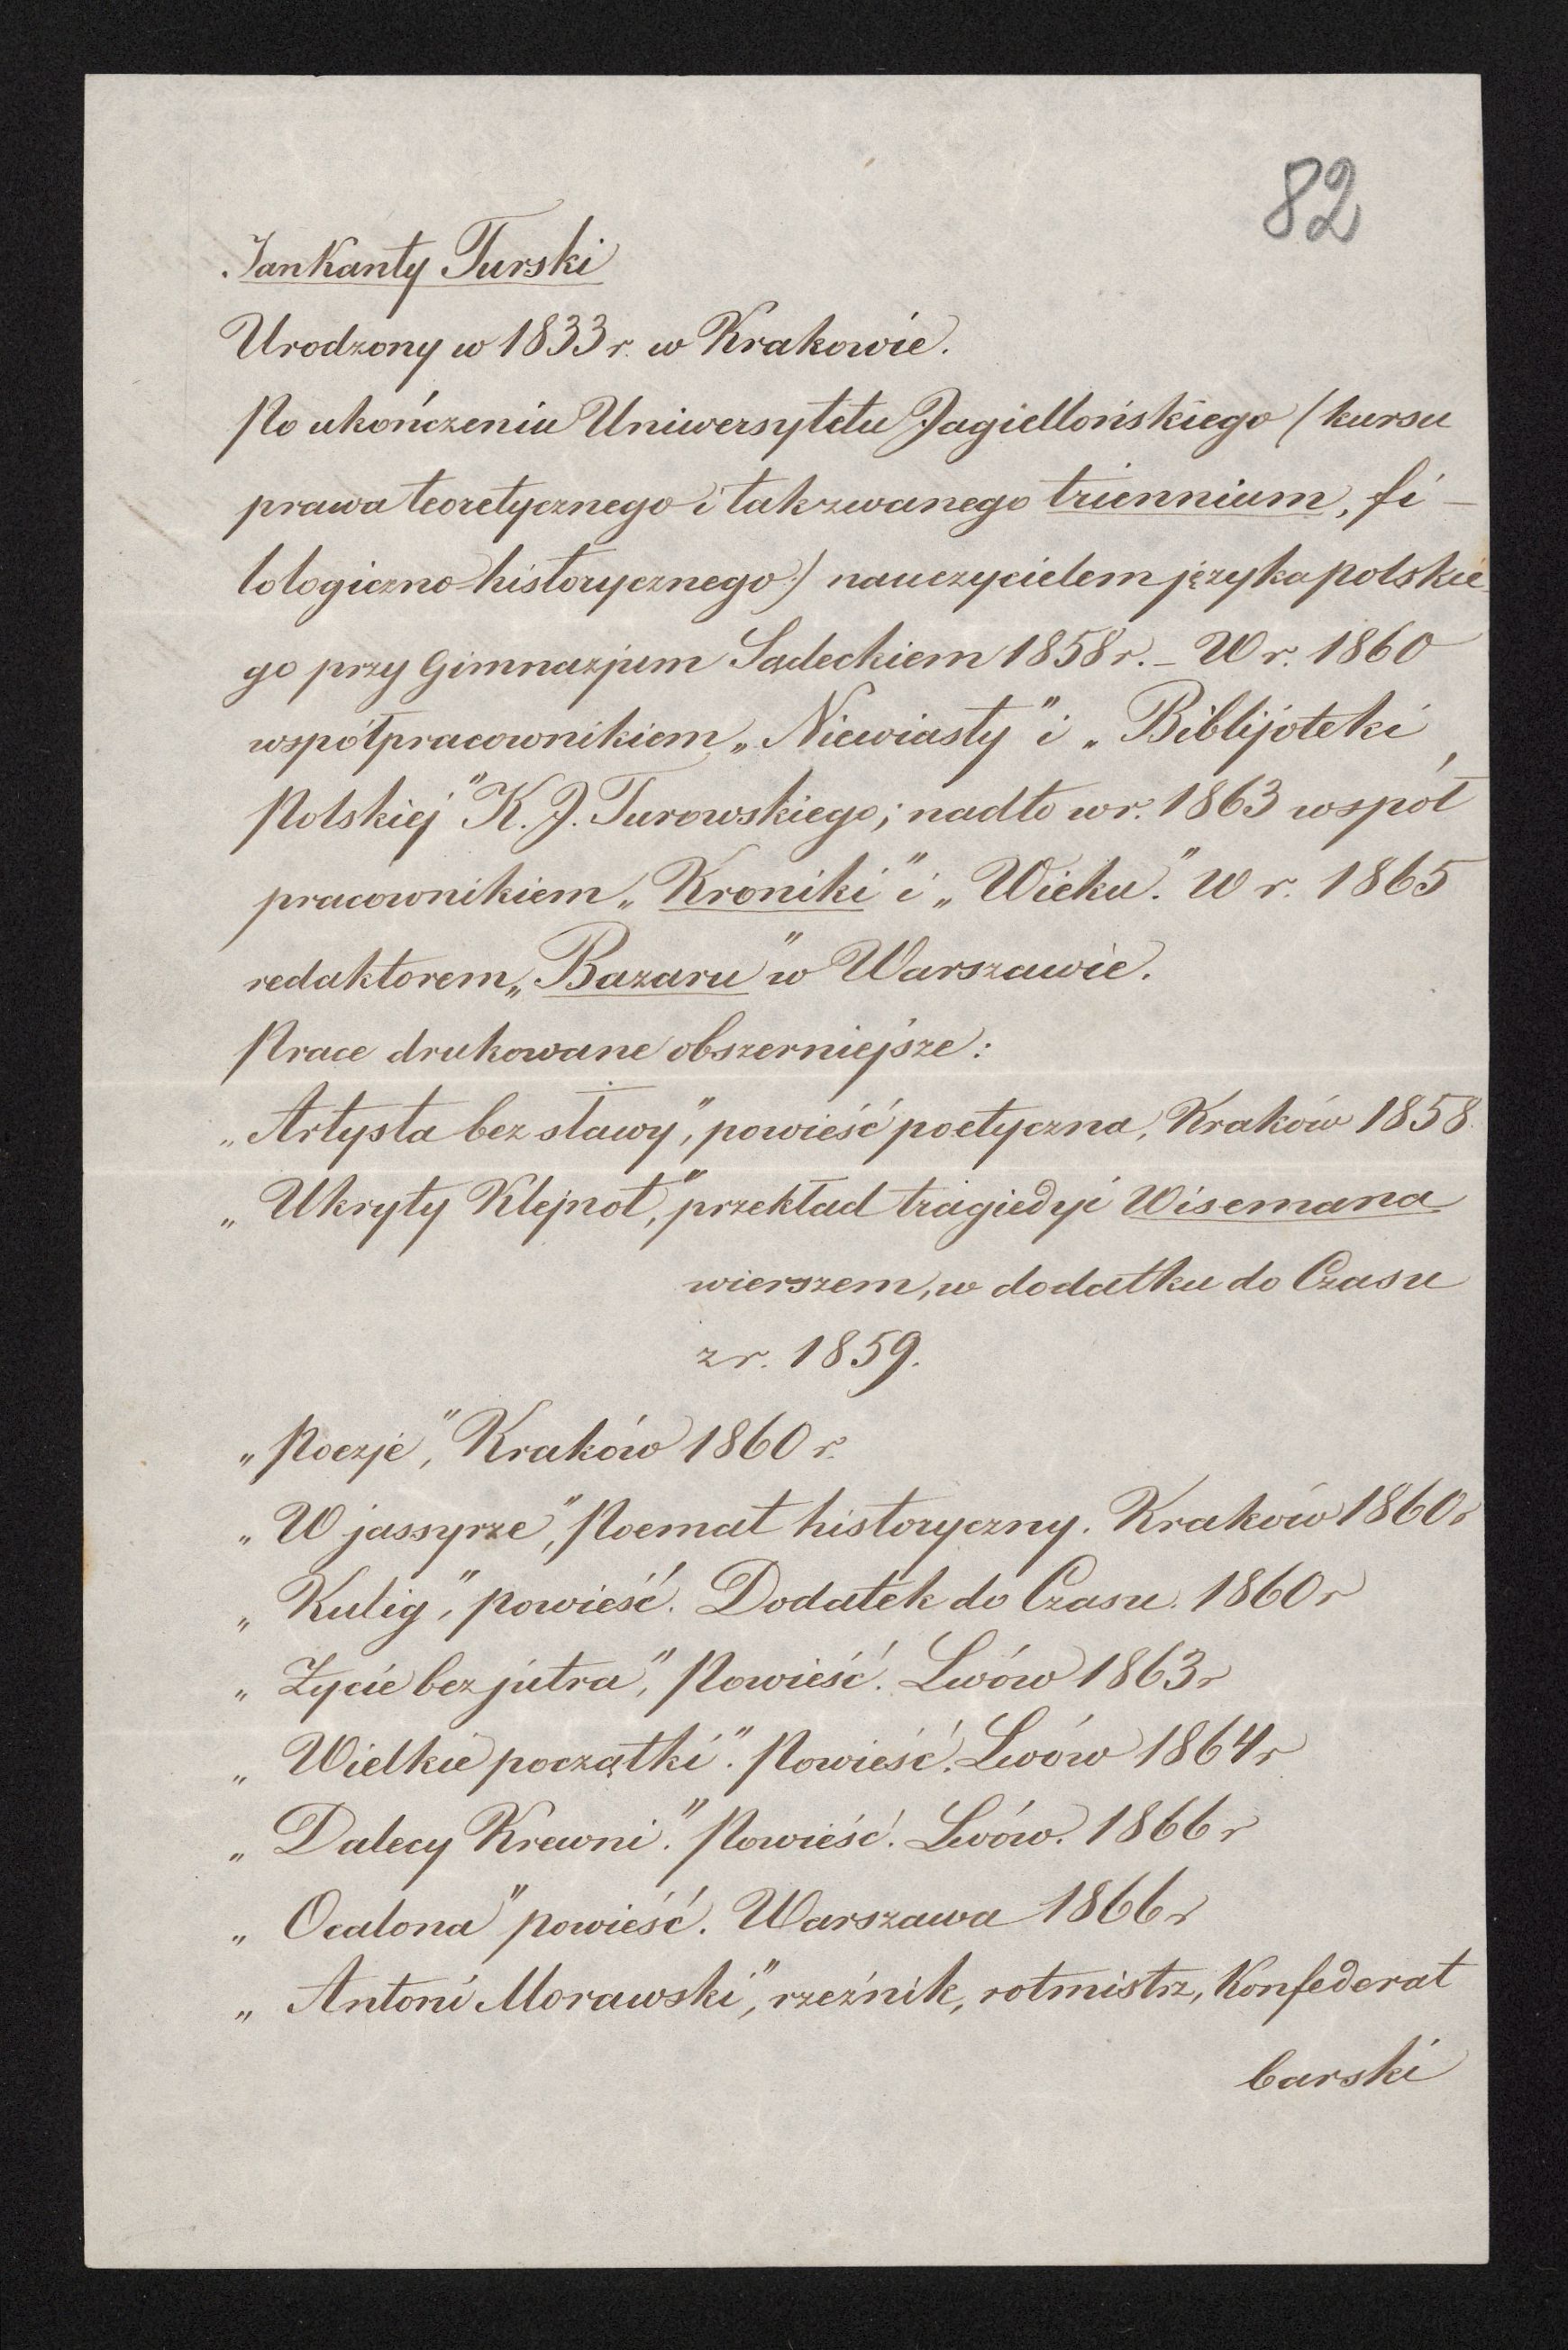 82
Jan Kanty Turski
Urodzony w 1833 r. w Krakowie.
Po ukończeniu Uniwersytetu Jagiellońskiego (kursu
prawa teoretycznego i tak zwanego triennium, fi-
lologiczno-historycznego) nauczycielem języka polskie
go przy Gimnazjum Sądeckiem 1858 r. – W r. 1860
współpracownikiem „Niewiasty" i „Biblijoteki
Polskiej" K. J. Turowskiego; nadto w r. 1863 współ
pracownikiem „Kroniki" i „Wieku." W r. 1865
redaktorem „Bazaru" w Warszawie.
Prace drukowane obszerniejsze:
„Artysta bez sławy", powieść poetyczna, Kraków 1858.
„Ukryty Klejnot," przekład tragiedyi Wisemana
wierszem, w dodatku do Czasu
z r. 1859.
„Poezje," Kraków 1860 r.
„W jassyrze", Poemat historyczny. Kraków 1860 r
„Kulig", powieść. Dodatek do Czasu. 1860 r
„Życie bez jutra", Powieść. Lwów 1863 r
„Wielkie początki". Powieść. Lwów 1864 r
„Dalecy Krewni." Powieść. Lwów. 1866 r
„Ocalona" powieść. Warszawa 1866 r
„Antoni Morawski", rzeźnik, rotmistrz, Konfederat
barski